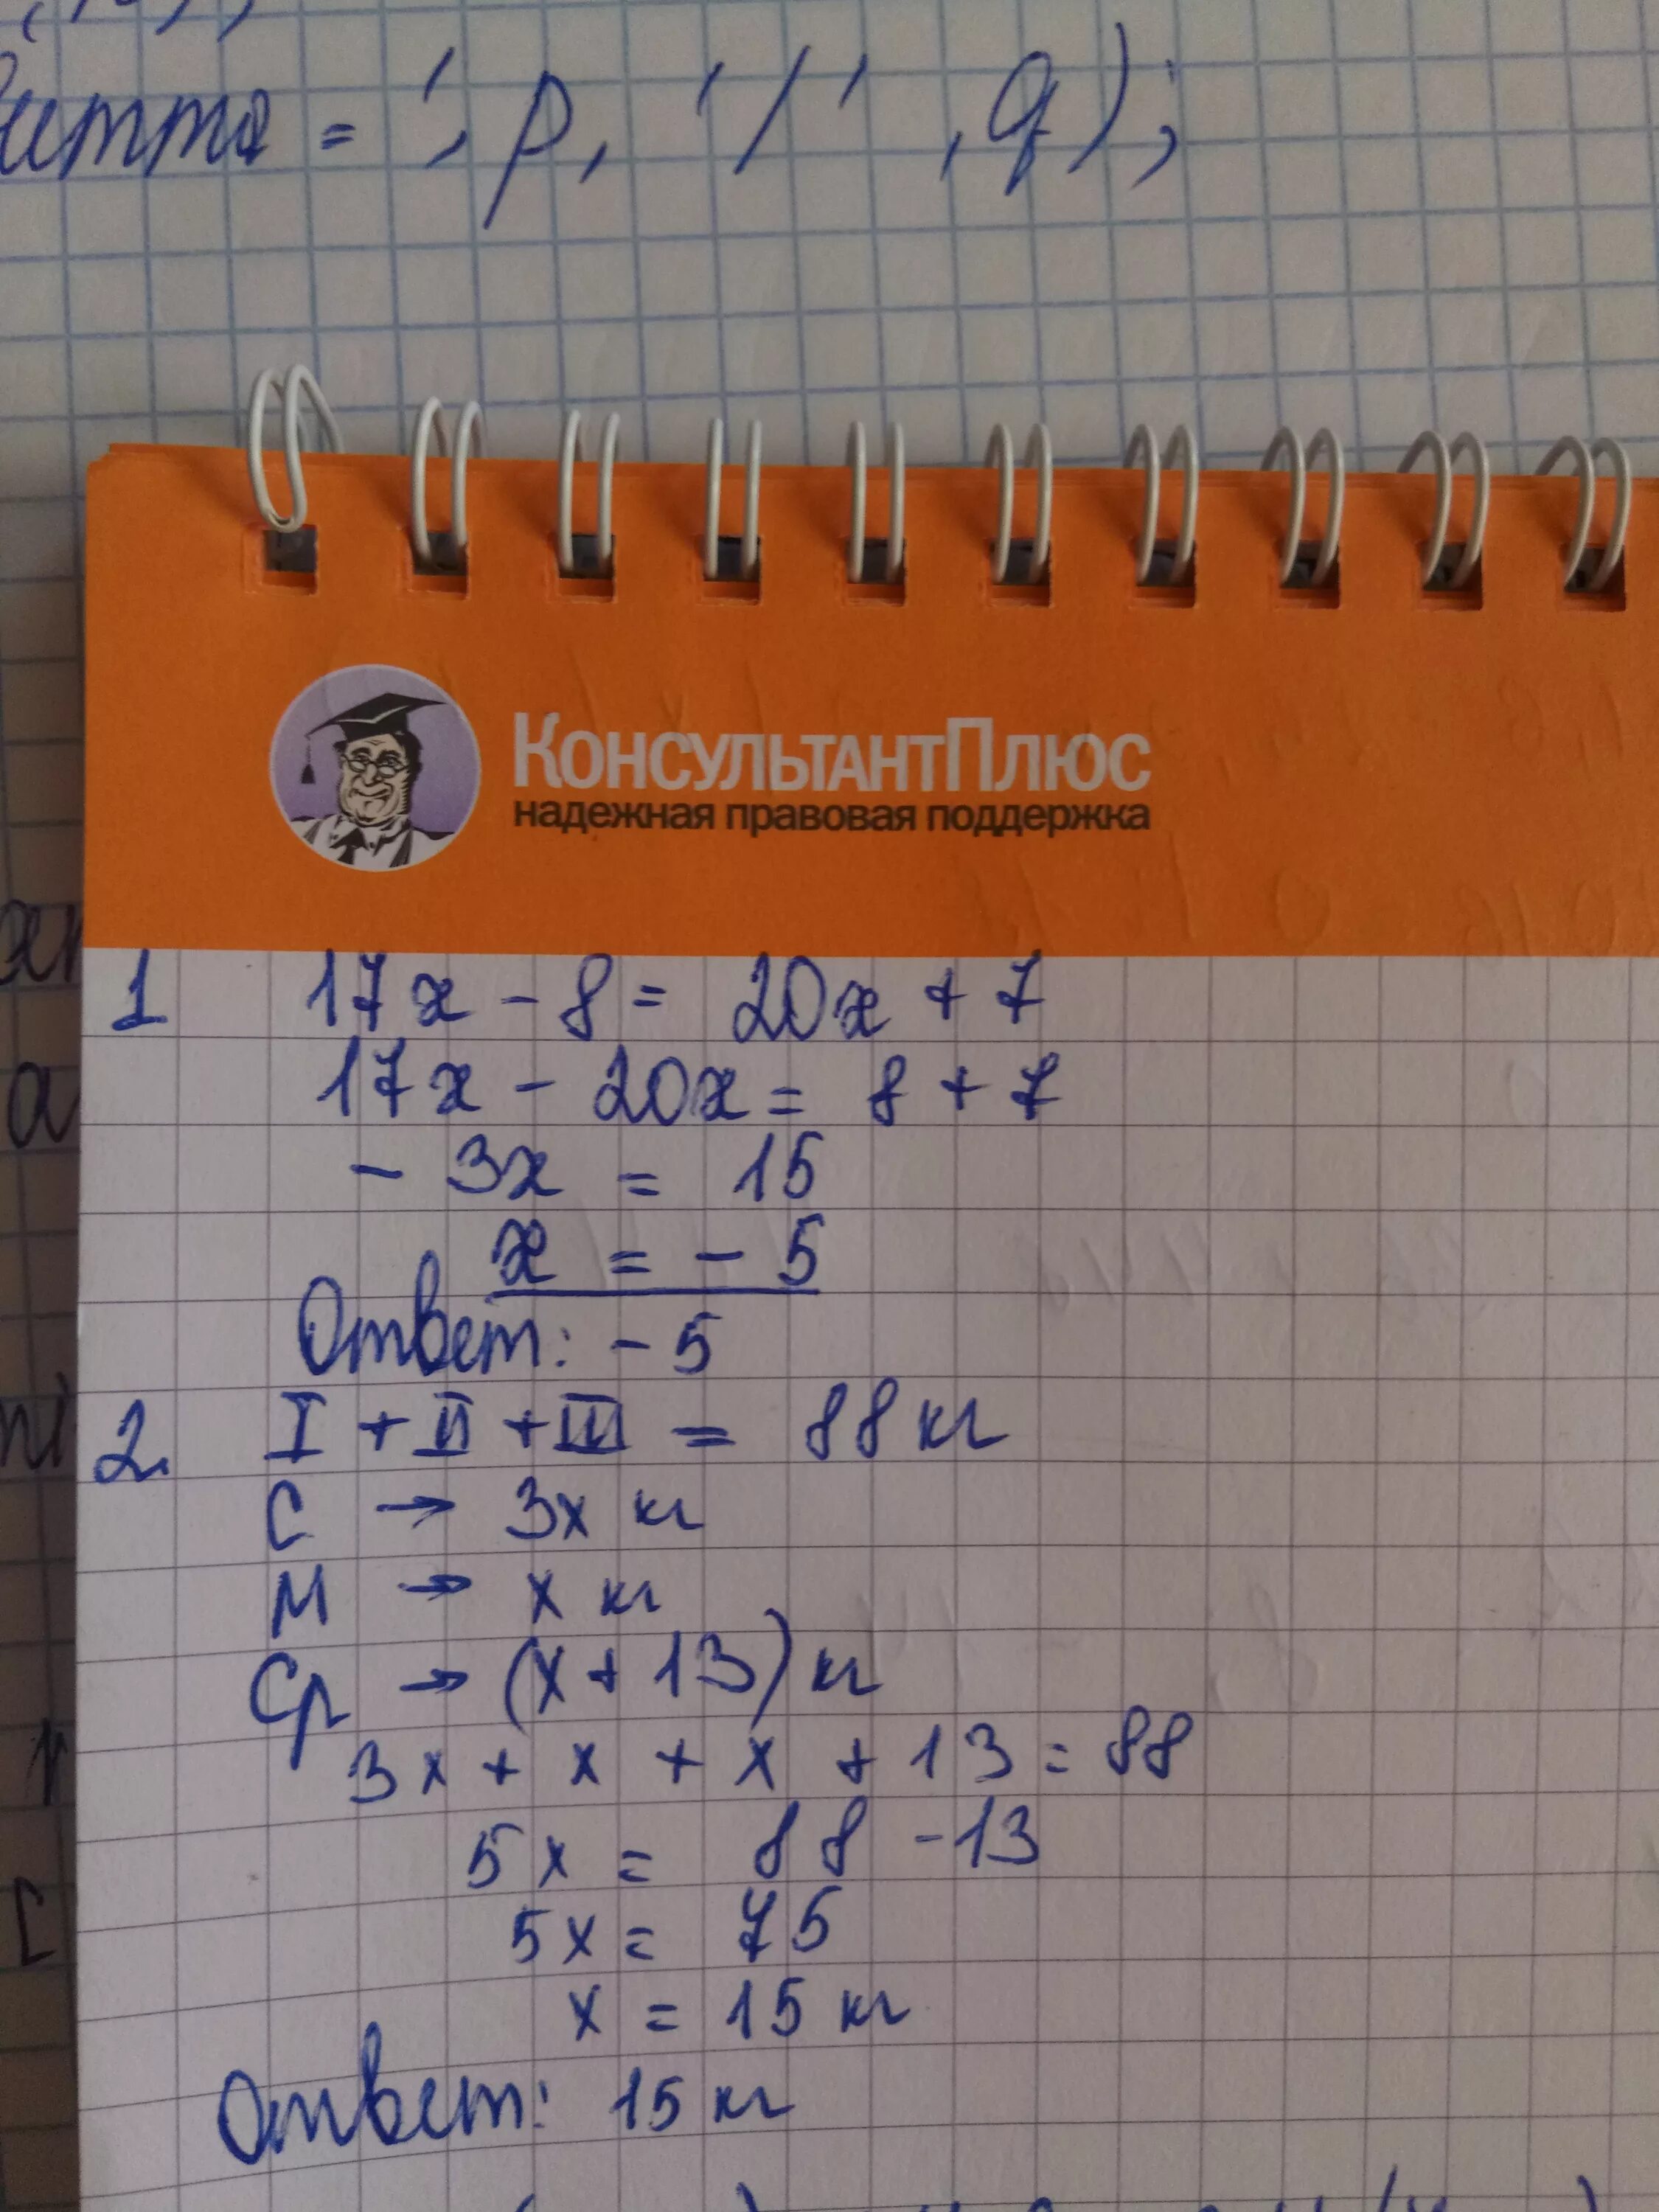 = ', p, '/' , q);
КонсультантПлюс
надежная правовая поддержка
1 17x - 8 = 20x + 7
17x - 20x = 8 + 7
- 3x = 15
x = - 5
Ответ: - 5
2. I + II + III = 88 кг
С → 3x кг
М → x кг
Ср → (x + 13) кг
3x + x + x + 13 = 88
5x = 88 - 13
5x = 75
x = 15 кг
Ответ: 15 кг